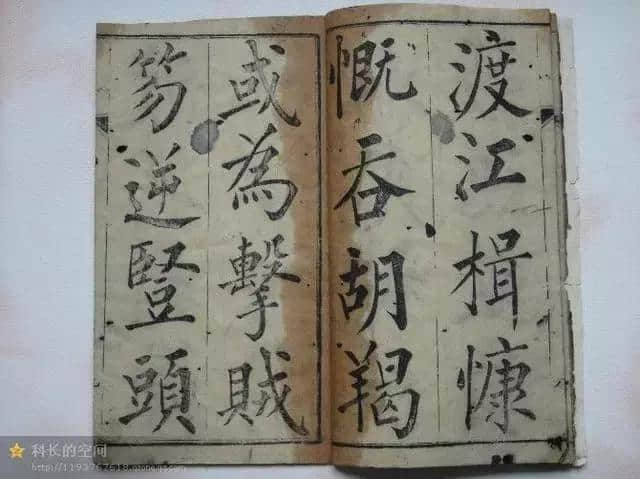 渡江楫慷
慨吞胡羯
或為擊賊
笏逆豎頭
科长的空间